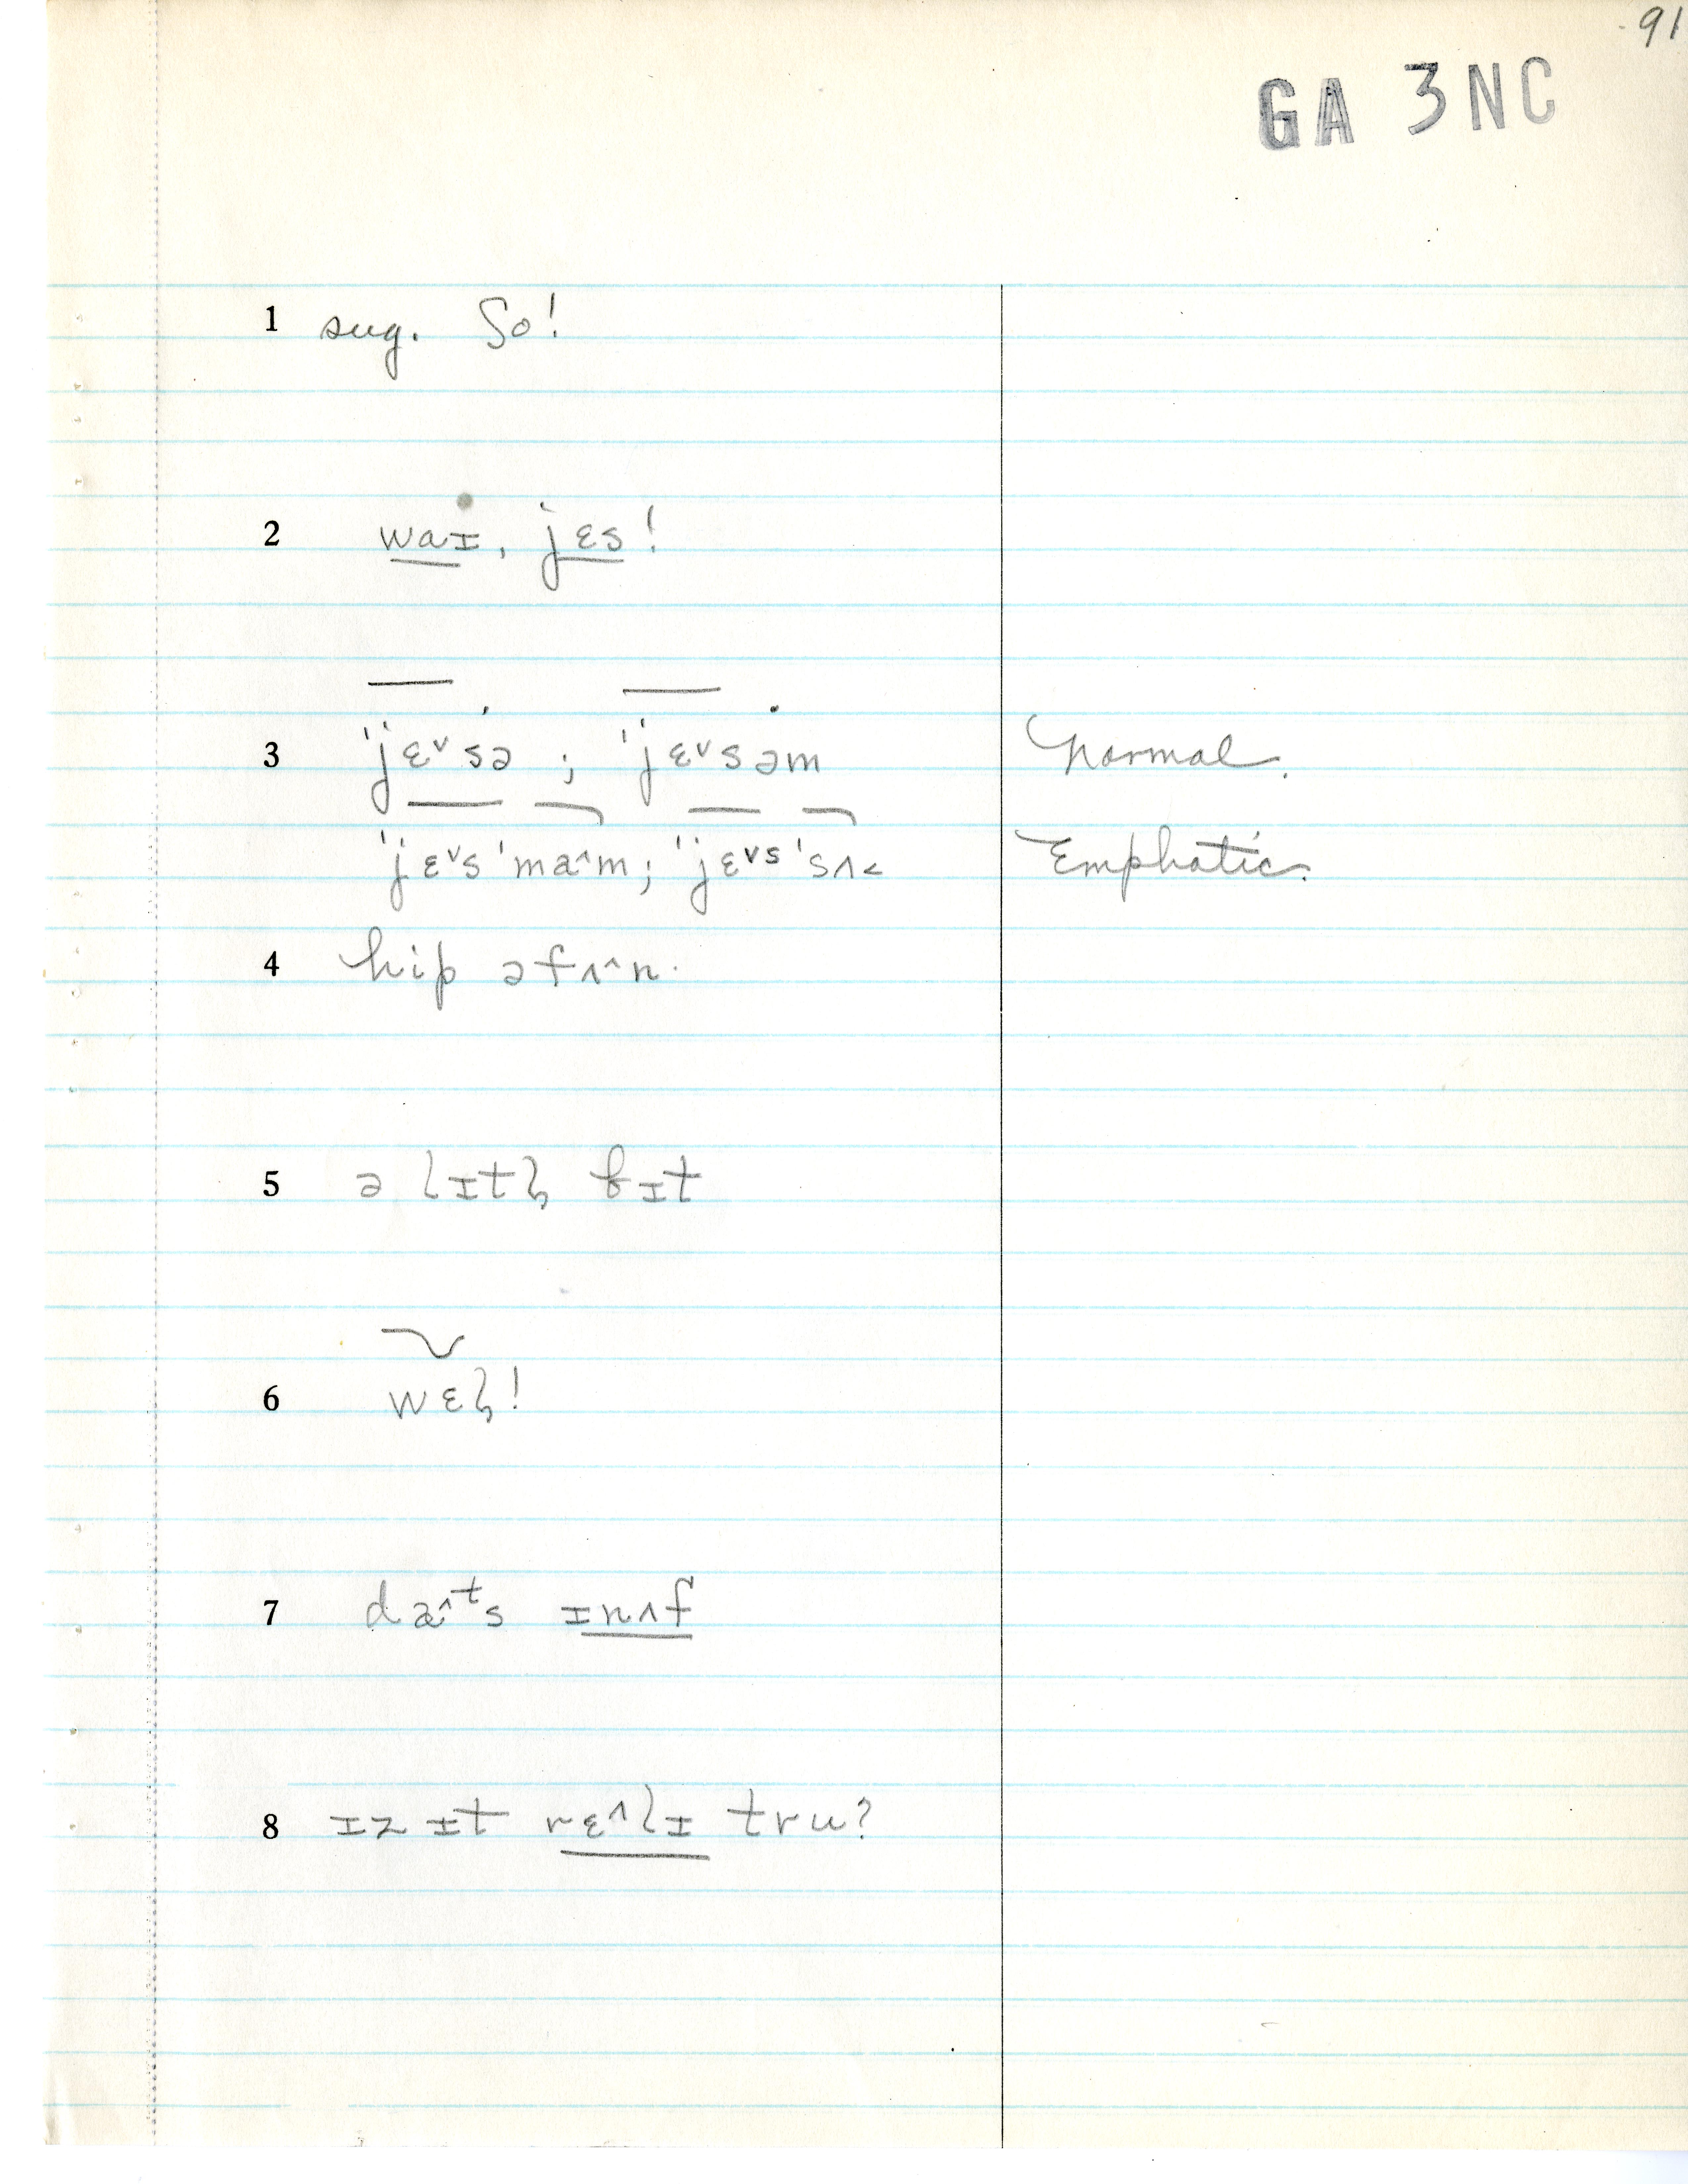 91
GA 3NC
1 sug. So!
2 waɪ, jɛs!
3 'jɛ˅sə ; 'jɛ˅səm Normal.
'jɛ˅s 'ma˄m; 'jɛ˅s 'sʌ˂ Emphatic.
4 hip əfʌ˄n.
5 ə lɪtl̩ bɪt
6 wɛl̩!
7 dæ˄ts ɪnʌf
8 ɪz ɪt rɛ˄lɪ tru?